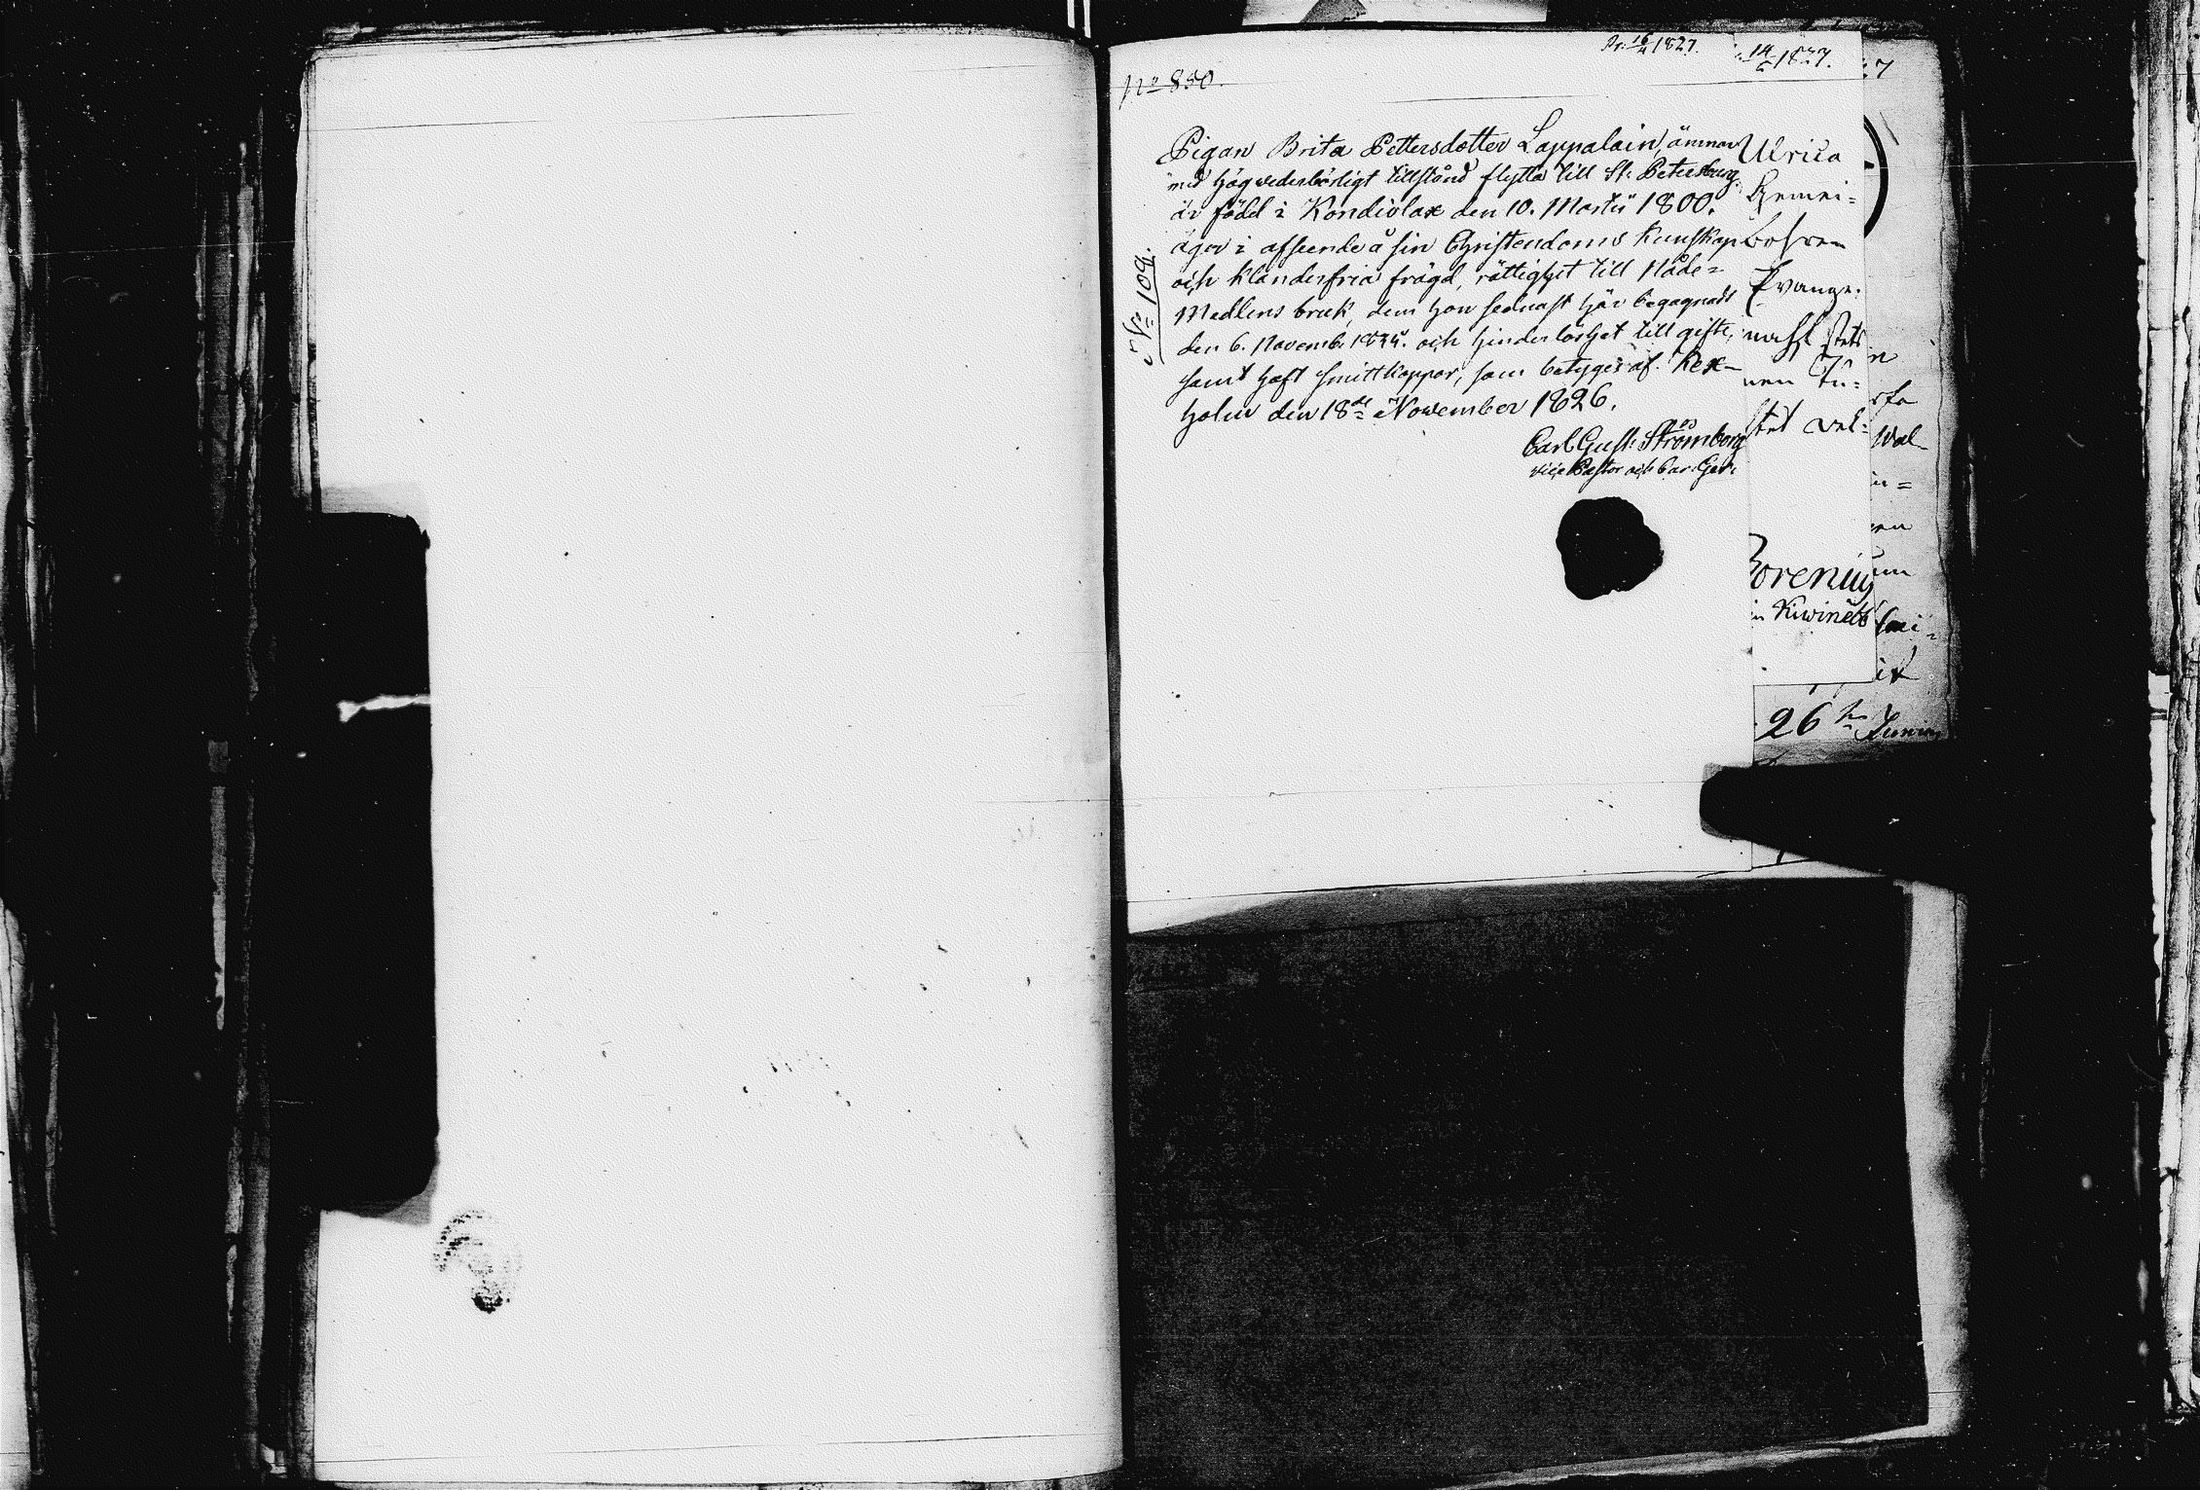 Pr. 16/4 1827.
14/6 1827.
7
No 850.
No 109.
Pigan Brita Pettersdotter Lappalain, ämnar
med högvederbörligt tillstånd flytta till St. Petersburg,
är född i Kondiolax den 10. Martii 1800.
äger i afseende å sin Christendoms kunskap
och klanderfria frägd, rättighet till Nåde=
Medlens bruk, dem hon sednast här begagnadt
den 6. Novemb. och hinderlöshet till gifte,
samt haft smittkoppor, som betygas af. Kex-
holm den 18de November 1826.
Carl Gust. Strömborg
vice Pastor och
Ulrica
Evange:
stets
Wal
orenius
in Kiwineb
26 Junius